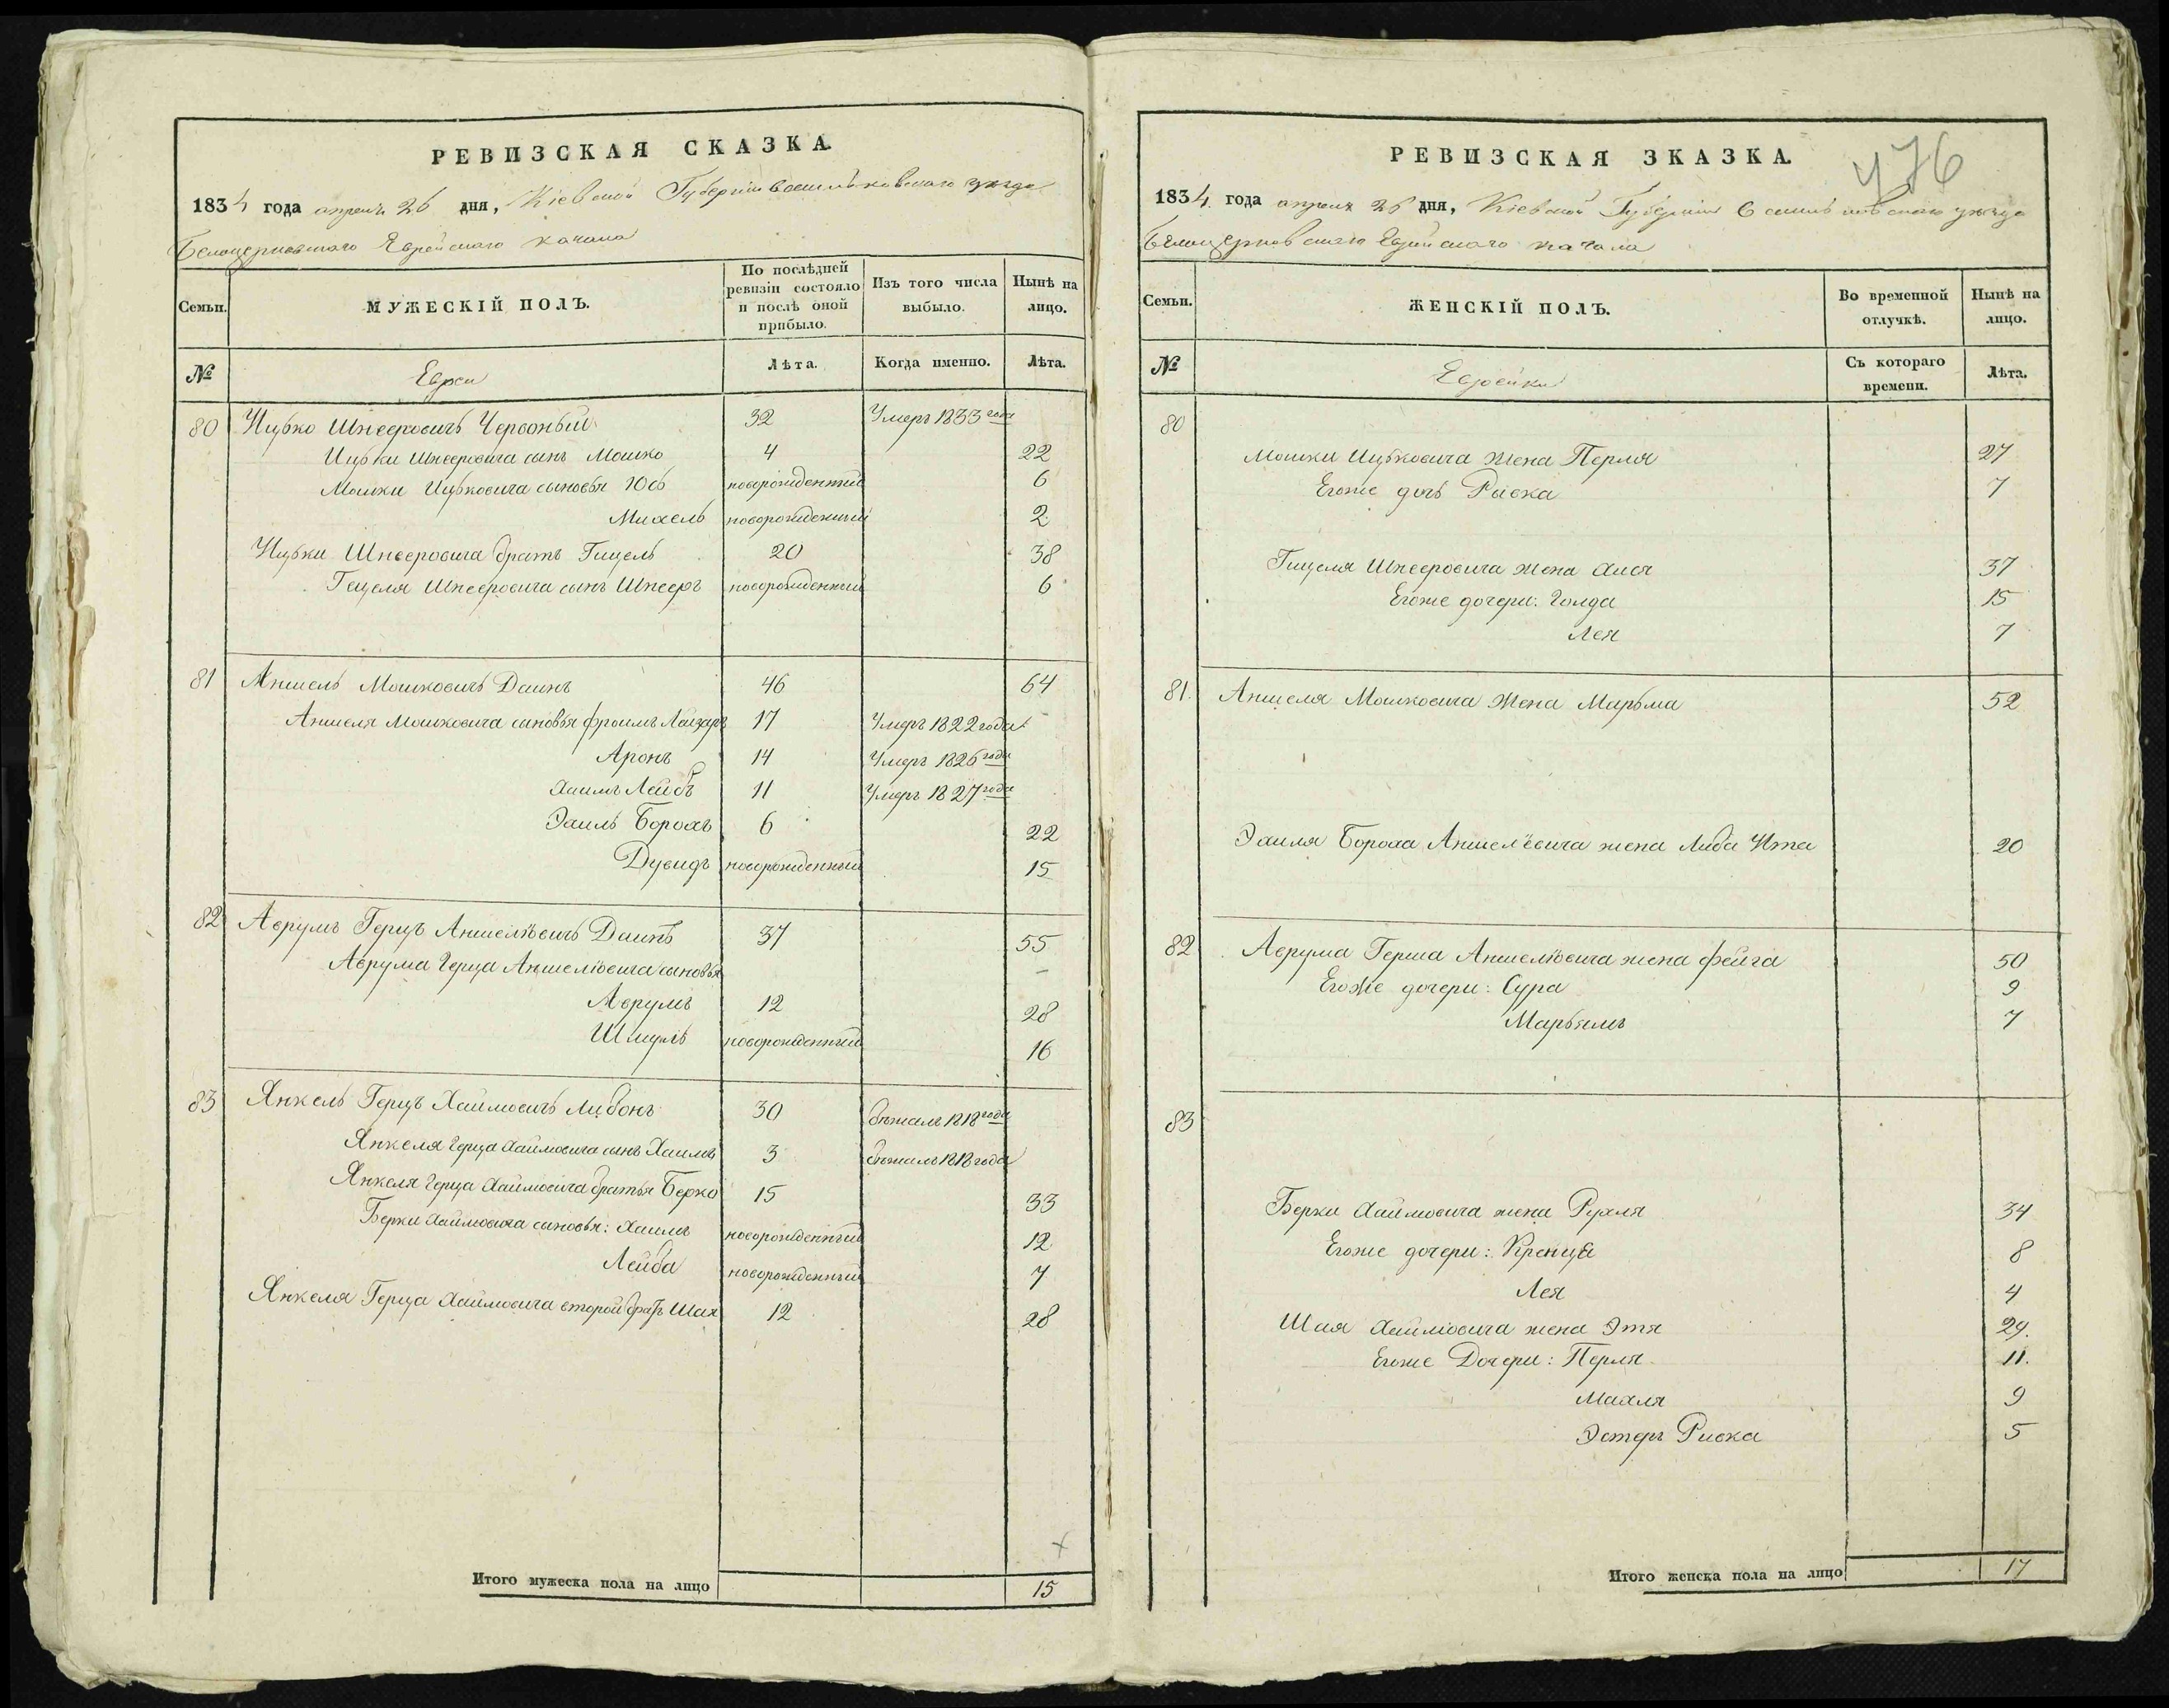 РЕВИЗСКАЯ СКАЗКА.
1834 года апреля 26 дня, Кіевской Губерніи Васильковскаго уезда
Белоцерковскаго Еврейскаго кагала
Семьи.
МУЖЕСКІЙ ПОЛЪ.
По послѣдней ревизіи состояло и послѣ оной прибыло.
Изъ того числа выбыло.
Нынѣ на лицо.
№
Евреи
Лѣта.
Когда именно.
Лѣта.
80 Ицько Шнееровичъ Червоный 32 Умеръ 1833 года
Ицьки Шнееровича сынъ Мошко 4 22
Мошки Ицьковича сыновья Юсь новорожденный 6
Михель новорожденный 2
Ицьки Шнееровича братъ Гицель 20 38
Гецеля Шнееровича сынъ Шнееръ новорожденный 6
81 Аншель Мошковичъ Даинъ 46 64
Аншеля Мошковича сыновья Фроимъ Лейзаръ 17 Умеръ 1822 года
Аронъ 14 Умеръ 1826 года
Хаимъ Лейбъ 11 Умеръ 1827 года
Эхиль Борохъ 6 22
Дувидъ новорожденный 15
82 Аврумъ Герцъ Аншеліовичъ Даинъ 37 55
Аврума Герца Аншеліовича сыновья
Аврумъ 12 28
Шмуль новорожденный 16
83 Янкель Герцъ Хаимовичъ Либонъ 30 бѣжалъ 1818 года
Янкеля Герца Хаимовича сынъ Хаимъ 3 бѣжалъ 1818 года
Янкеля Герца Хаимовича братья Берко 15 33
Берки Хаимовича сыновья: Хаимъ новорожденный 12
Лейба новорожденный 7
Янкеля Герца Хаимовича второй братъ Шая 12 28
Итого мужеска пола на лицо 15
476
РЕВИЗСКАЯ ЗКАЗКА.
1834 года апреля 26 дня, Кіевской Губерніи Васильковскаго уезда
Белоцерковскаго Еврейскаго кагала
Семьи.
ЖЕНСКІЙ ПОЛЪ.
Во временной отлучкѣ.
Нынѣ на лицо.
№
Еврейки
Съ котораго времени.
Лѣта.
80
Мошки Ицьковича жена Перля 27
Егоже дочь Рывка 7
Гицеля Шнееровича жена Хася 37
Егоже дочери: Голда 15
Лея 7
81. Аншеля Мошковича Жена Марьма 52
Эхиля Бороха Аншеліевича жена Либа Ита 20
82 Аврума Герша Аншеліовича жена Фейга 50
Егоже дочери: Сура 9
Марьямъ 7
83
Берки Хаимовича жена Рухля 34
Егоже дочери: Кренця 8
Лея 4
Шая Хаимовича жена Этя 29.
Егоже Дочери: Перля 11.
Махля 9
Эстеръ Ривка 5
Итого женска пола на лицо 17